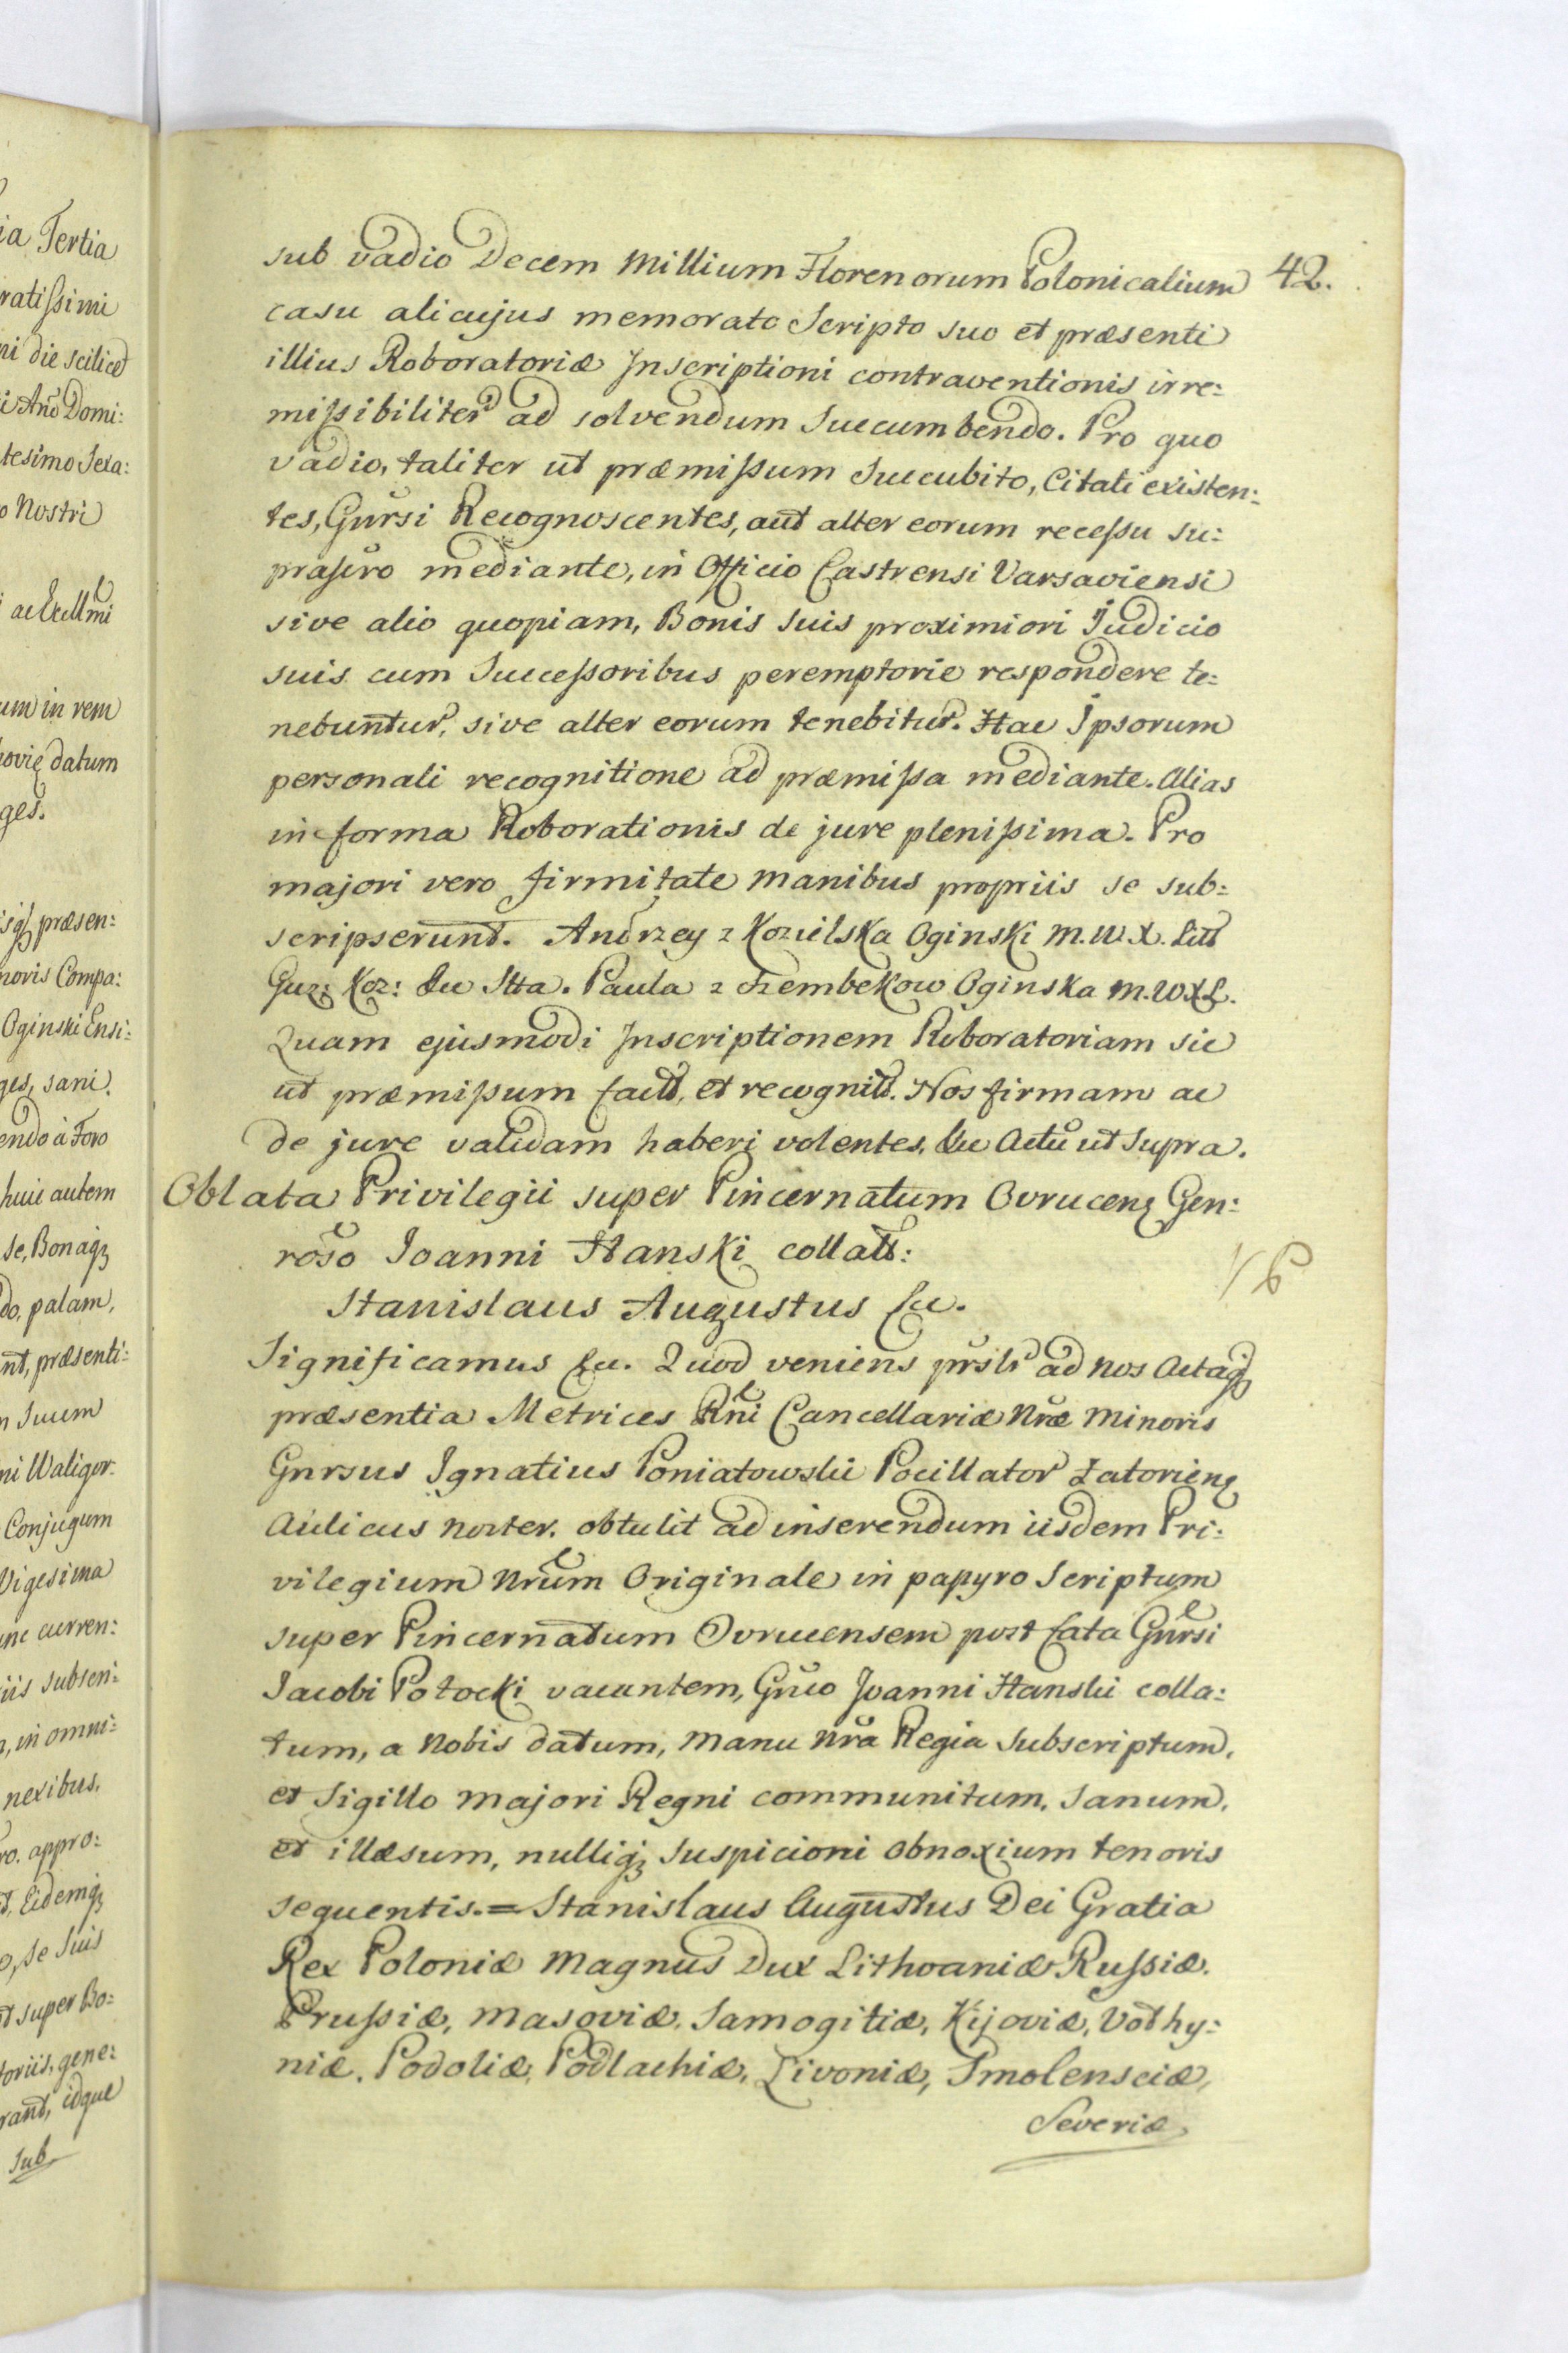 42.
sub vadio Decem Millium Florenorum Polonicalium
casu alicujus memorato Scripto suo et præsenti
illius Roboratoriæ Inscriptioni contraventionis irre:
missibiliter ad solvendum Succumbendo. Pro quo
vadio, taliter ut præmissum Succubito, Citati existen:
tes, Gnrsi Recognoscentes, aut alter eorum recessu su:
prascro mediante, in Officio Castrensi Varsaviensi
sive alio quopiam, Bonis suis proximiori Judicio
suis cum Successoribus peremptorie respondere te:
nebuntur, sive alter eorum tenebitur. Hac Ipsorum
personali recognitione ad præmissa mediante. Alias
in forma Roborationis de jure plenissima. Pro
majori vero firmitate manibus propriis se sub:
scripserunt. Andrzey z Kozielska Oginski M. W. X. Litt
Guz: Koz: &c Stta. Paula z Szembekow Oginska M. W X L.
Quam ejusmodi Inscriptionem Roboratoriam sic
ut præmissum factt, et recognitt. Nos firmam ac
de jure validam haberi volentes, &c Actu ut supra.
Oblata Privilegii super Pincernatum Ovrucenẹ Gen:
roso Joanni Hanski collatt:
Stanislaus Augustus &c.
Significamus &c. Quod veniens prslr ad nos Actaqꝫ
præsentia Metrices Rni Cancellariæ Nræ Minoris
Gnrsus Ignatius Poniatowski Pocillator Zatorienẹ
Aulicus noster. obtulit ad inserendum iisdem Pri:
vilegium Nrum Originale in papyro Scriptum
super Pincernatum Ovrucensem post fata Gnrsi
Jacobi Potocki vacantem, Gnrso Joanni Hanski colla:
tum, a Nobis datum, manu Nra Regia Subscriptum,
et Sigillo majori Regni communitum, Sanum,
et illæsum, nulliqꝫ Suspicioni obnoxium tenoris
sequentis.= Stanislaus Augustus Dei Gratia
Rex Poloniæ Magnus Dux Lithvaniæ Russiæ.
Prussiæ, Masoviæ, Samogitiæ, Kijoviæ, Volhy:
niæ, Podoliæ, Podlachiæ, Livoniæ, Smolensciæ,
Severiæ